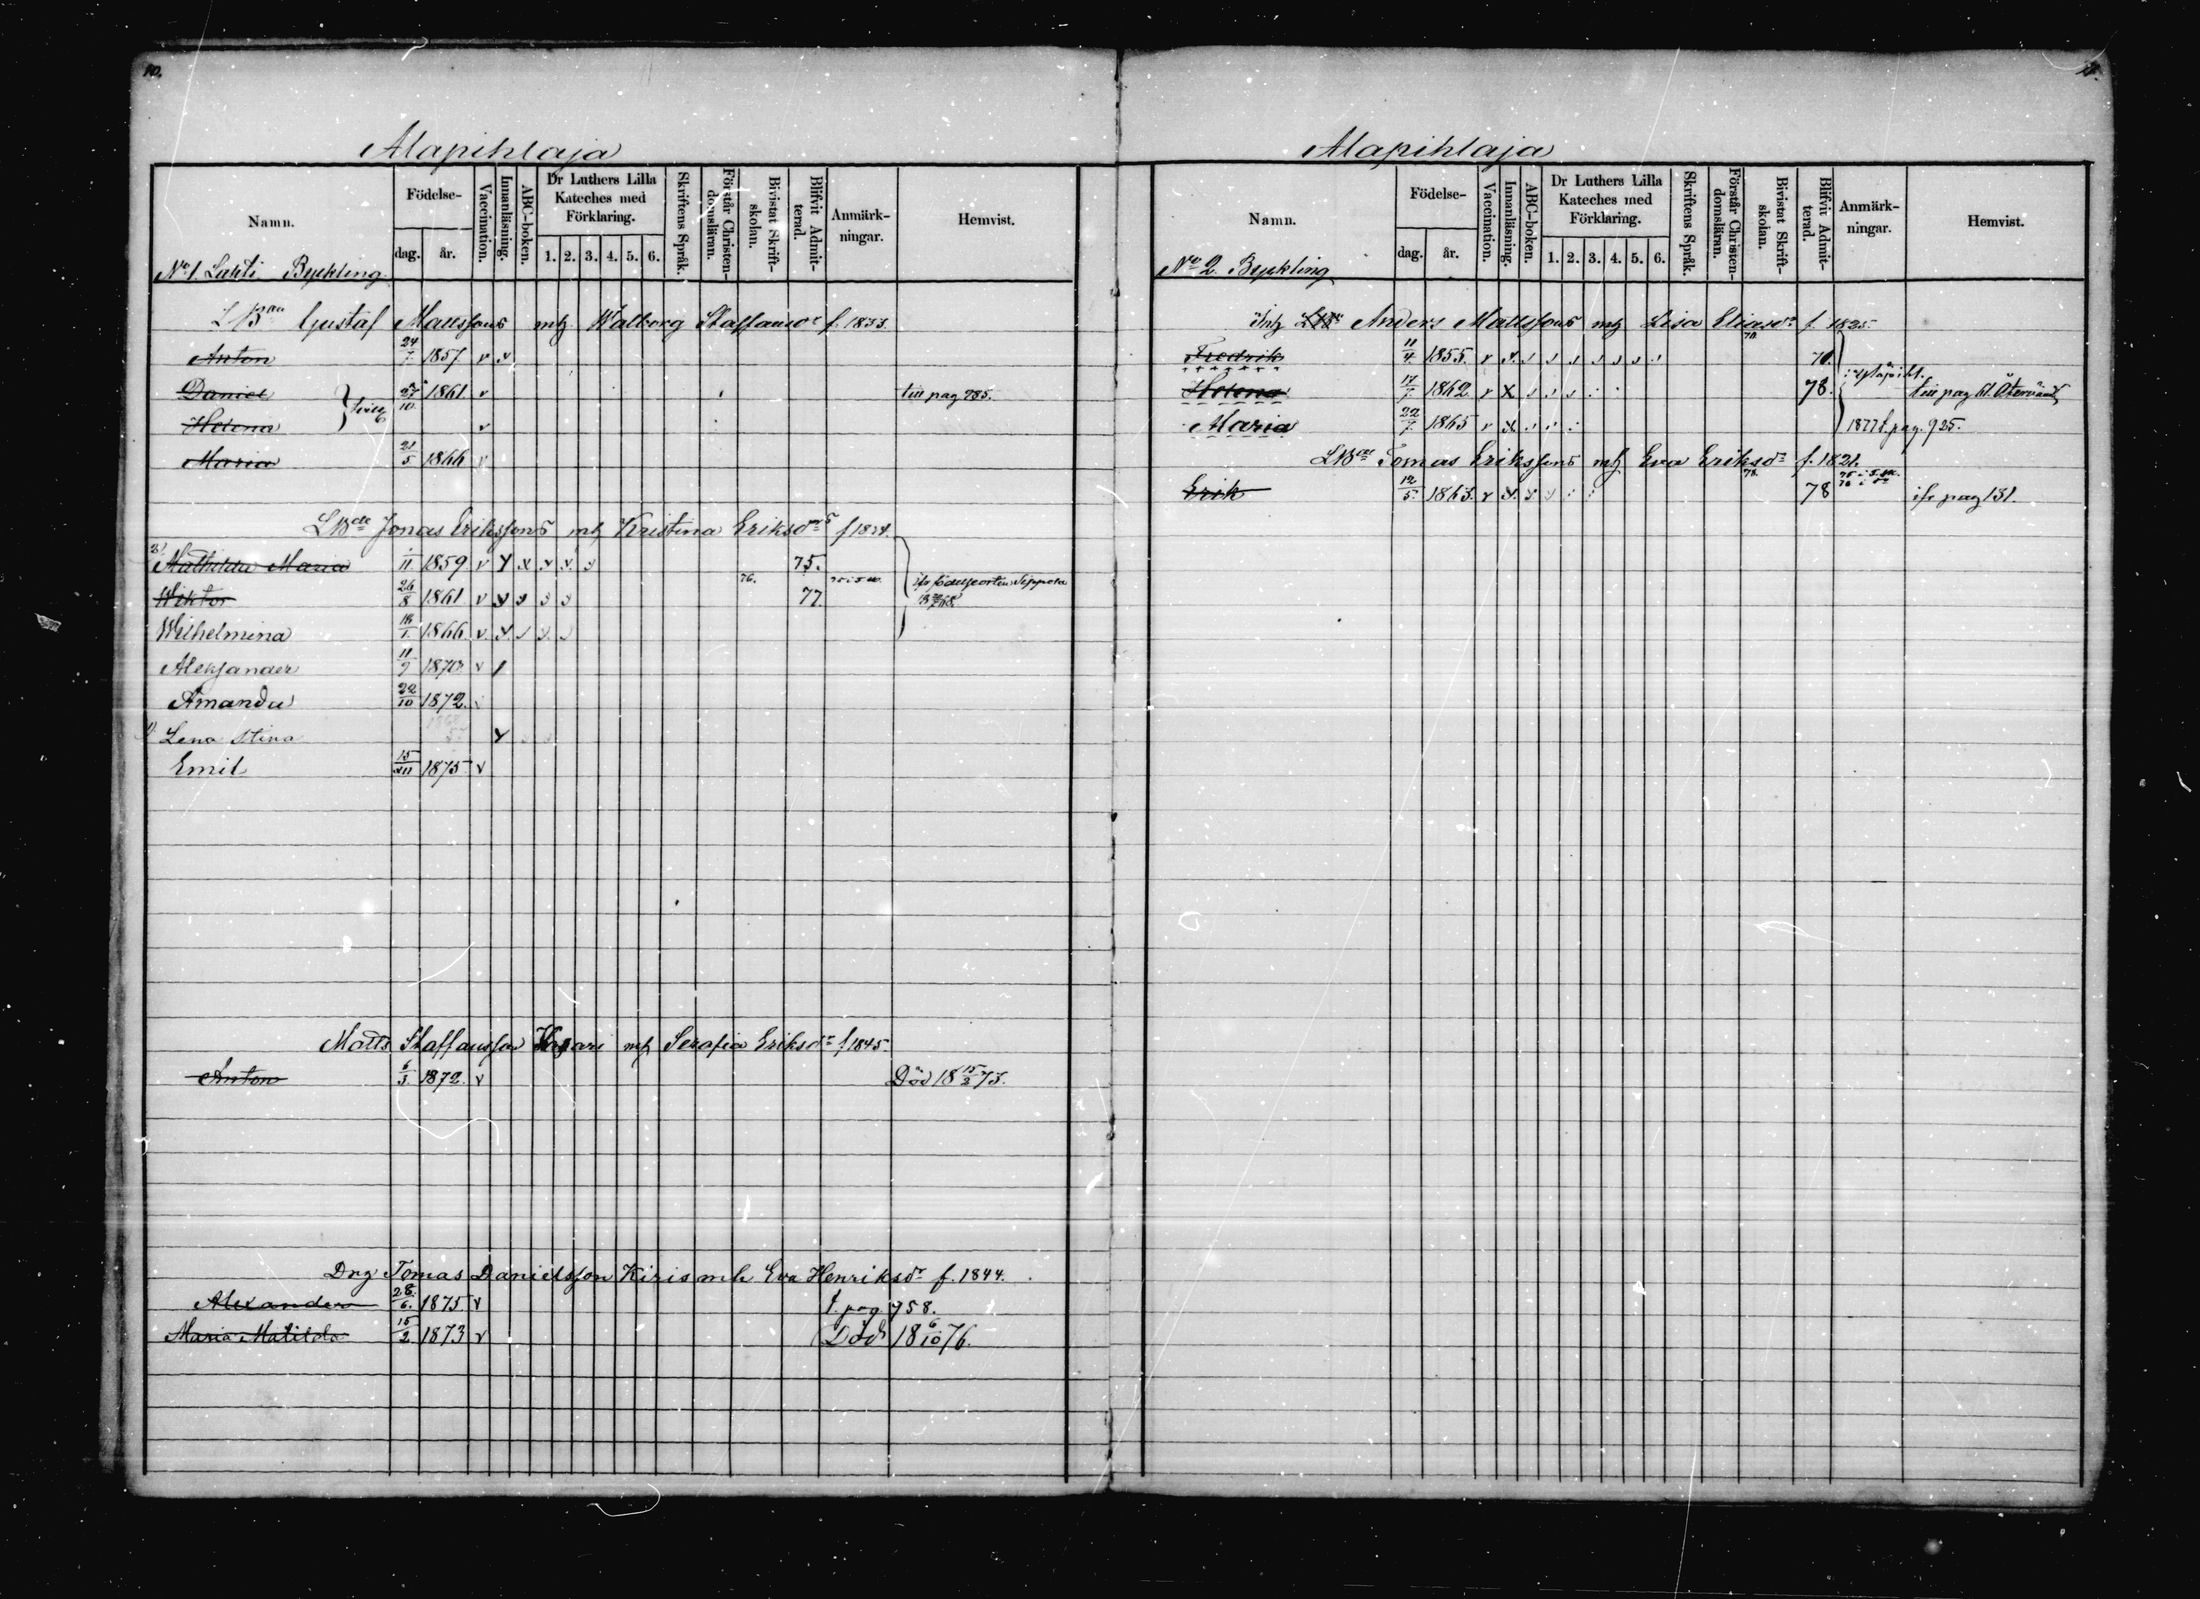 10.
Alapihlaja
Namn.
Födelse-
dag.
år.
Vaccination.
Innanläsning.
ABC-boken.
Dr Luthers Lilla
Kateches med
Förklaring.
1. 2. 3. 4. 5. 6.
Skriftens Språk.
Förstår Christen-
domsläran.
Bivistat Skrift-
skolan.
Blifvit Admit-
terad.
Anmärk-
ningar.
Hemvist.
No 1. Lahti Byckling
Gustaf Mattssons mh Walborg Staffansdr f. 1833.
Anton 24/7 1857. v x
Daniel 27/10 1861. v till pag 785.
Helena v
Maria 21/5 1866 v
LBde Jonas Erikssons mh Kristina Eriksdrs
Mathilda Maria 11 1859 v x x x x 75.
Wiktor 26/8 1861 v 76. 77.
Wilhelmina 1866 v
Aleksander 11/9 1870 v
Amanda 22/10 1872.
Lena Stina
Emil 15/XII 1875 v
Matts Staffansson mh Serafia Eriksdr f. 1845.
Anton 6/3 1872. v Död 18 15/2 73.
Drg Tomas Danielsson Kiris mh Eva Henriksdr f. 1844.
Alexander 28/6. 1875 v t. pag. 758.
Maria Matilda 15/2 1873 v Död 18 6/10 76.
11.
Alapihlaja
Namn.
Födelse-
dag.
år.
Vaccination.
Innanläsning.
ABC-boken.
Dr Luthers Lilla
Kateches med
Förklaring.
1. 2. 3. 4. 5. 6.
Skriftens Språk.
Förstår Christen-
domsläran.
Bivistat Skrift-
skolan.
Blifvit Admit-
terad.
Anmärk-
ningar.
Hemvist.
No 2. Byckling
Inh Anders Mattssons mh Lisa Eliasdr f. 1825.
Fredrik 11/4 1855. v x
Helena 17/7 1862 v x 78. till pag
Maria 22/7 1865 v x 1877 t. pag. 925.
LBde Tomas Erikssons mh Eva Eriksdr f. 1821.
78.
Erik 12/5. 1863. v x 78 pag 131.